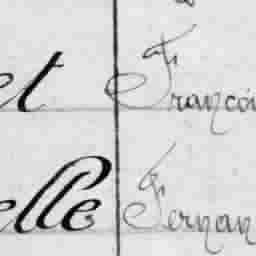 et Françoi
elle Fernan